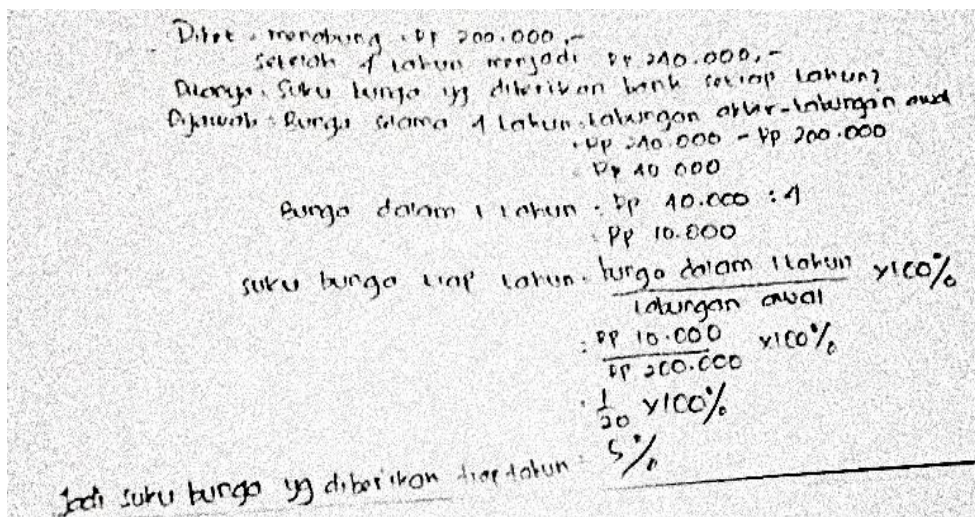 Diket : menabung : Rp 200.000,-
setelah 4 tahun menjadi Rp 240.000,-
Ditanya : Suku bunga yg diberikan bank setiap tahun?
Dijawab : Bunga selama 4 tahun = tabungan akhir - tabungan awal
= Rp 240.000 - Rp 200.000
= Rp 40 000
Bunga dalam 1 tahun = Rp 40.000 : 4
= Rp 10.000
suku bunga tiap tahun = bunga dalam 1 tahun x100%
tabungan awal
= Rp 10.000 x100%
Rp 200.000
= 1/20 x100%
= 5%
Jadi suku bunga yg diberikan tiap tahun = 5%